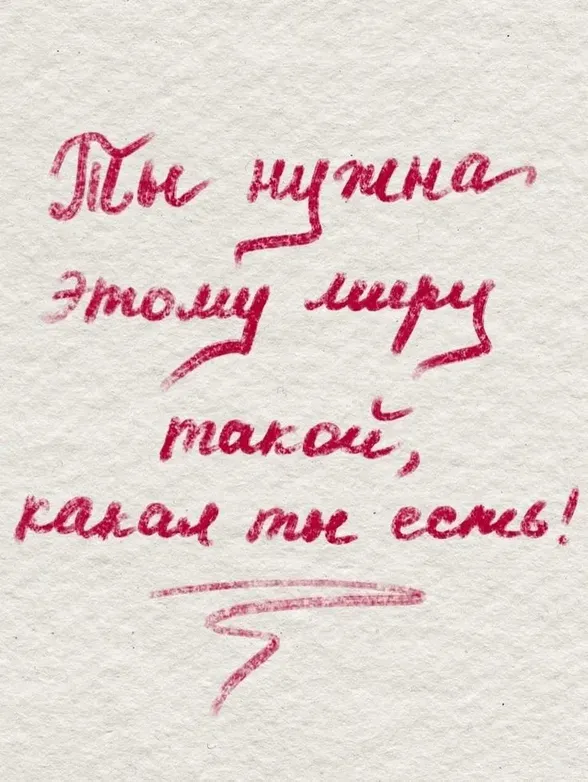 Ты нужна
этому миру
такой,
какая ты есть!